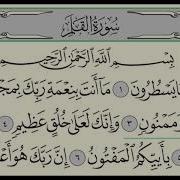 سُورَةُ القَلَمِ
بِسْمِ ٱللَّهِ ٱلرَّحْمَٰنِ ٱلرَّحِيمِ
يَسْطُرُونَ ١ مَآ أَنتَ بِنِعْمَةِ رَبِّكَ بِمَجْ
مَمْنُونٍ ٣ وَإِنَّكَ لَعَلَىٰ خُلُقٍ عَظِيمٍ ٤
بِأَييِّكُمُ ٱلْمَفْتُونُ ٦ إِنَّ رَبَّكَ هُوَ أَعْ